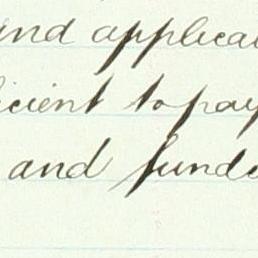 and applica
icient to pay
and funde